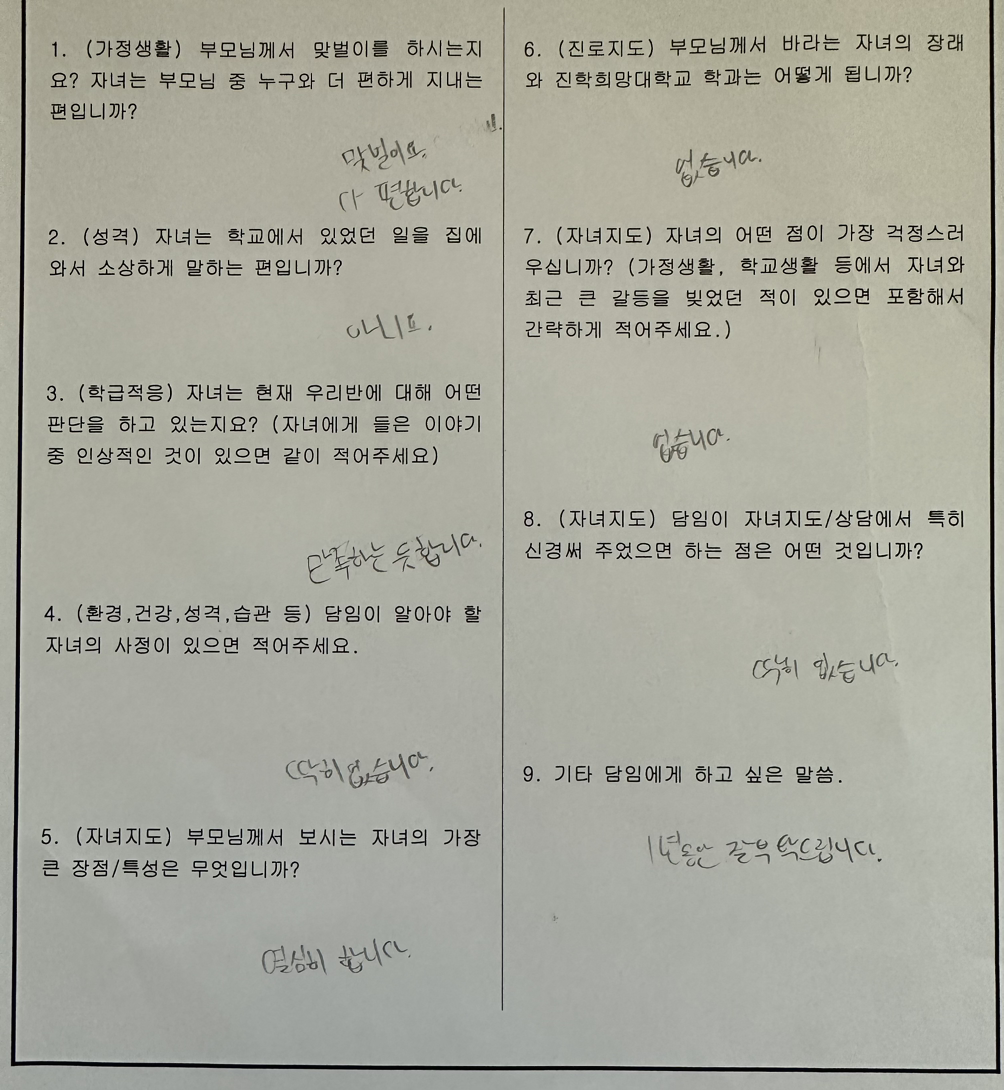 1. (가정생활) 부모님께서 맞벌이를 하시는지
요? 자녀는 부모님 중 누구와 더 편하게 지내는
편입니까?
맞벌이요.
다 편합니다.
2. (성격) 자녀는 학교에서 있었던 일을 집에
와서 소상하게 말하는 편입니까?
아니요.
3. (학급적응) 자녀는 현재 우리반에 대해 어떤
판단을 하고 있는지요? (자녀에게 들은 이야기
중 인상적인 것이 있으면 같이 적어주세요)
만족하는 듯 합니다.
4. (환경,건강,성격,습관 등) 담임이 알아야 할
자녀의 사정이 있으면 적어주세요.
딱히 없습니다.
5. (자녀지도) 부모님께서 보시는 자녀의 가장
큰 장점/특성은 무엇입니까?
열심히 합니다.
6. (진로지도) 부모님께서 바라는 자녀의 장래
와 진학희망대학교 학과는 어떻게 됩니까?
없습니다.
7. (자녀지도) 자녀의 어떤 점이 가장 걱정스러
우십니까? (가정생활, 학교생활 등에서 자녀와
최근 큰 갈등을 빚었던 적이 있으면 포함해서
간략하게 적어주세요.)
없습니다.
8. (자녀지도) 담임이 자녀지도/상담에서 특히
신경써 주었으면 하는 점은 어떤 것입니까?
딱히 없습니다.
9. 기타 담임에게 하고 싶은 말씀.
1년동안 잘 부탁드립니다.